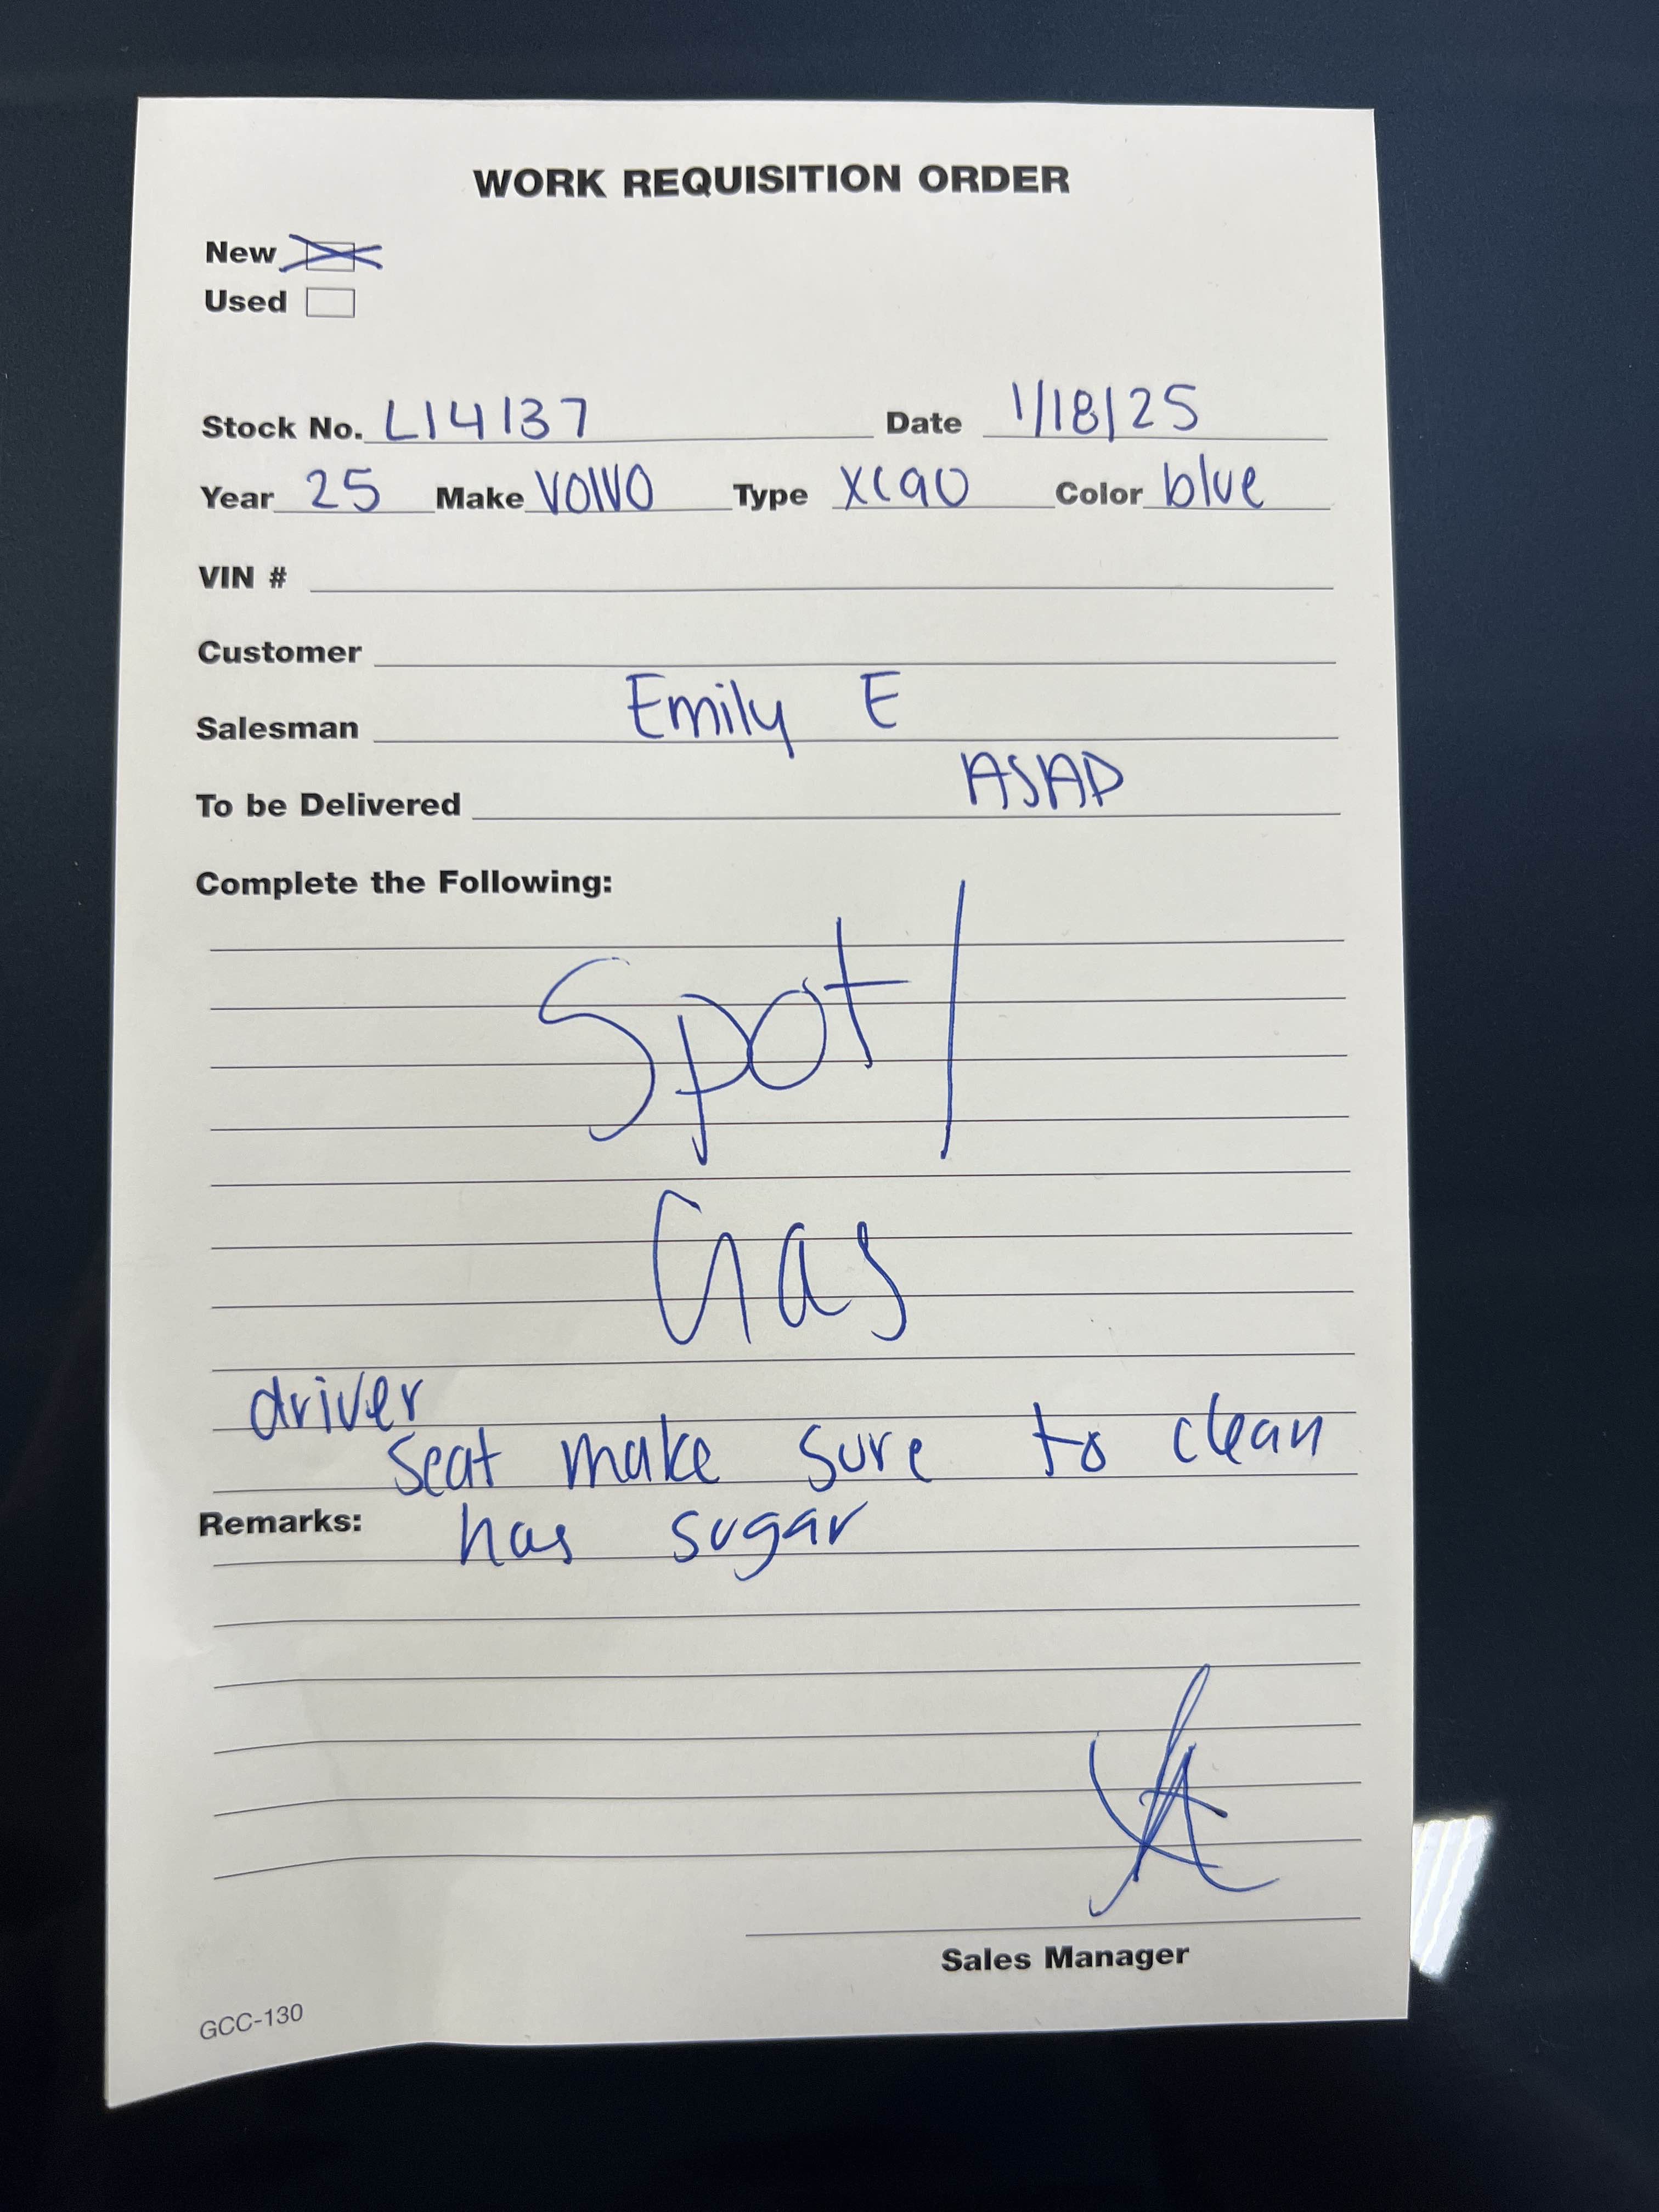 WORK REQUISITION ORDER
New
Used
Stock No. L14137 Date 1/18/25
Year 25 Make VOlVO Type XC90 Color blue
VIN #
Customer
Salesman Emily E
To be Delivered ASAP
Complete the Following:
Spot/
Gas
driver
seat make sure to clean
Remarks: has sugar
Sales Manager
GCC-130